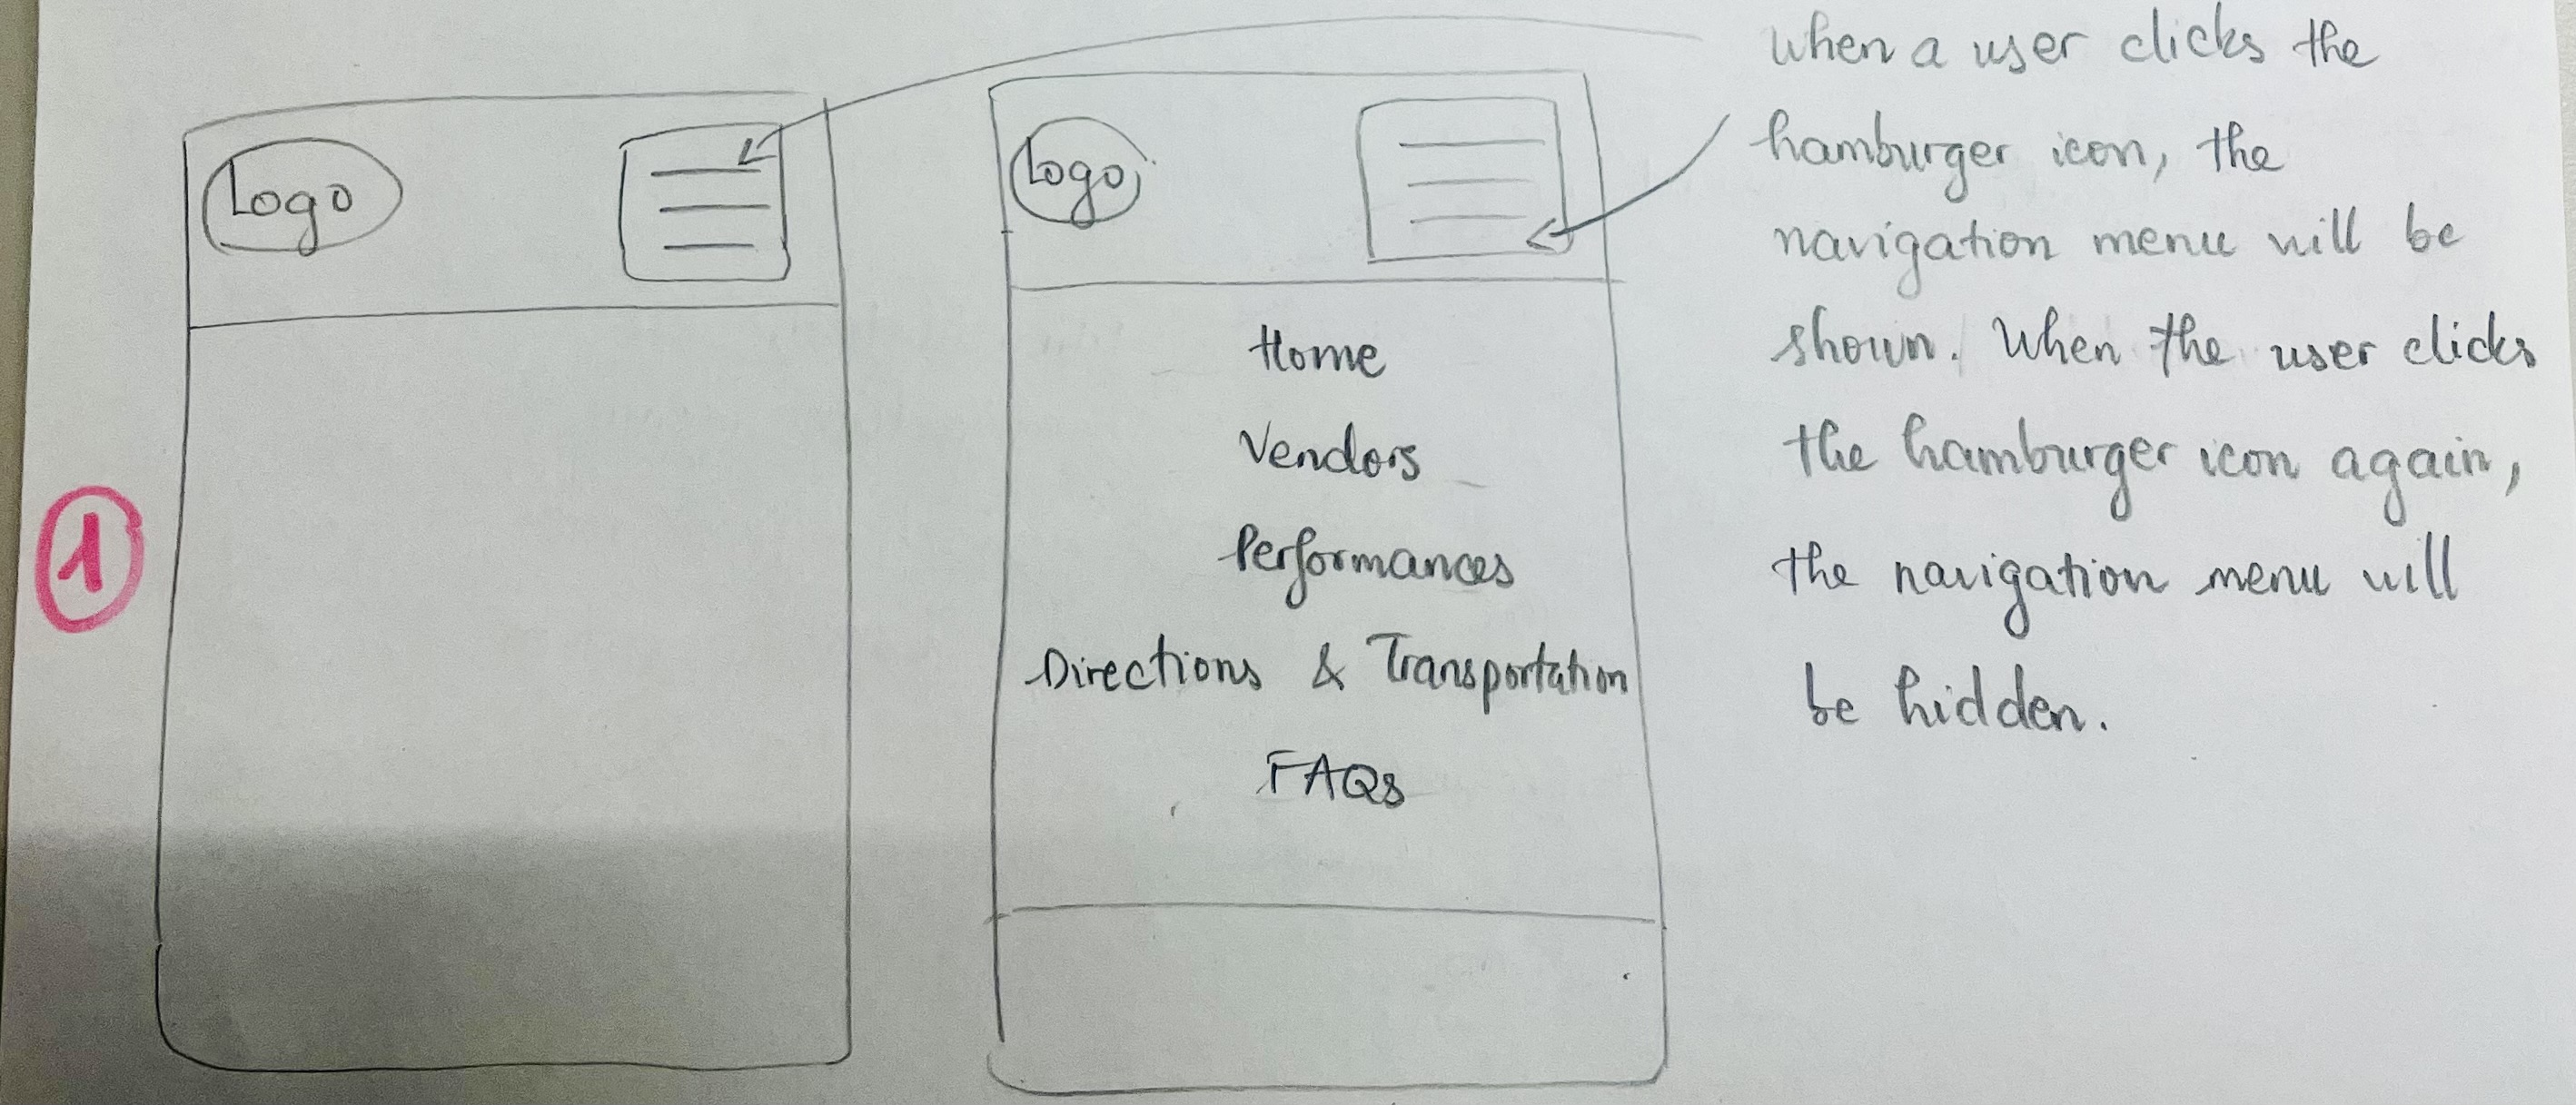 1
Logo
Logo
Home
Vendors
Performances
Directions & Transportation
FAQs
When a user clicks the
hamburger icon, the
navigation menu will be
shown. When the user clicks
the hamburger icon again,
the navigation menu will
be hidden.